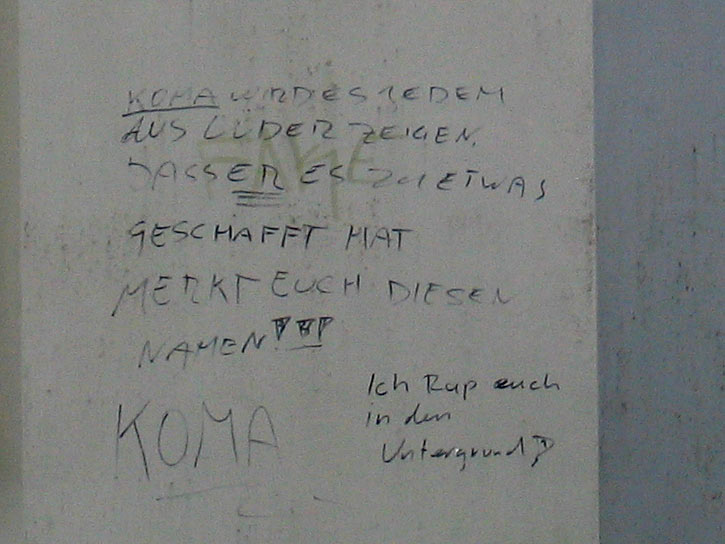 KOMA WIRD ES JEDEM
AUS LÜDER ZEIGEN,
DASS ER ES ZU ETWAS
GESCHAFFT HAT
MERKT EUCH DIESEN
NAMEN!!!
KOMA
Ich Rap euch
in den
Untergrund!